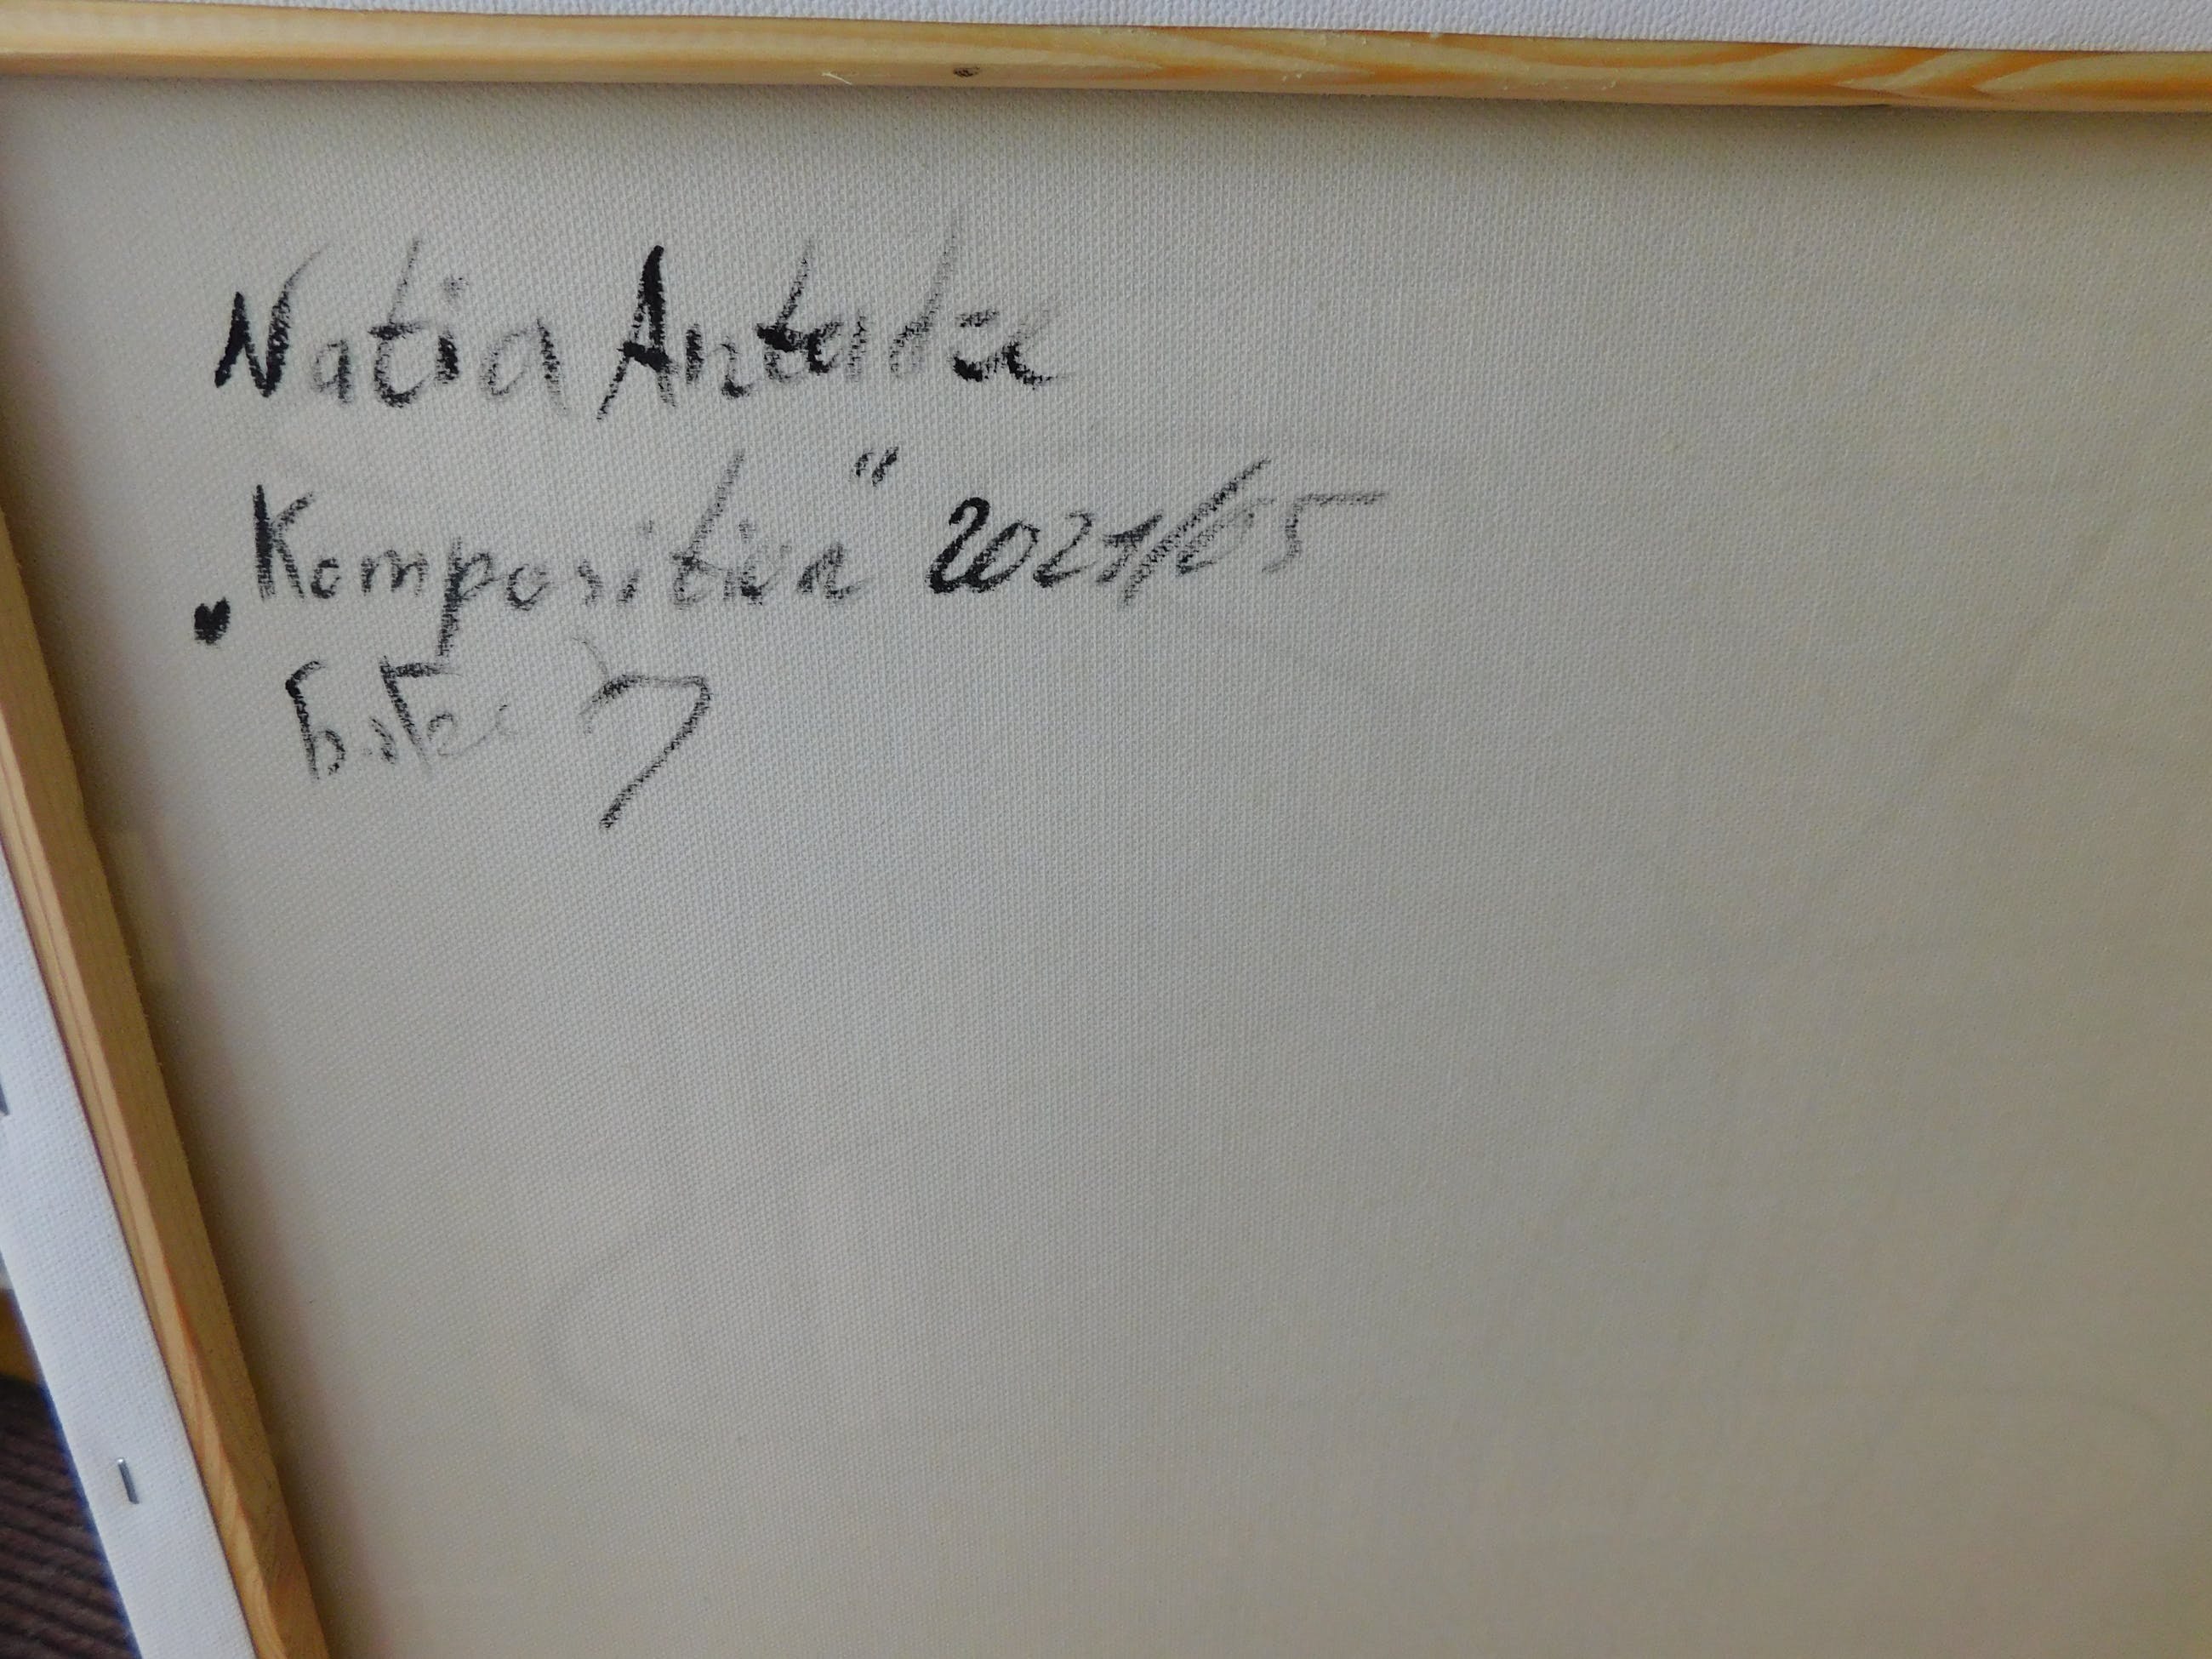 Natia Antadze
„Komposition" 2021/05